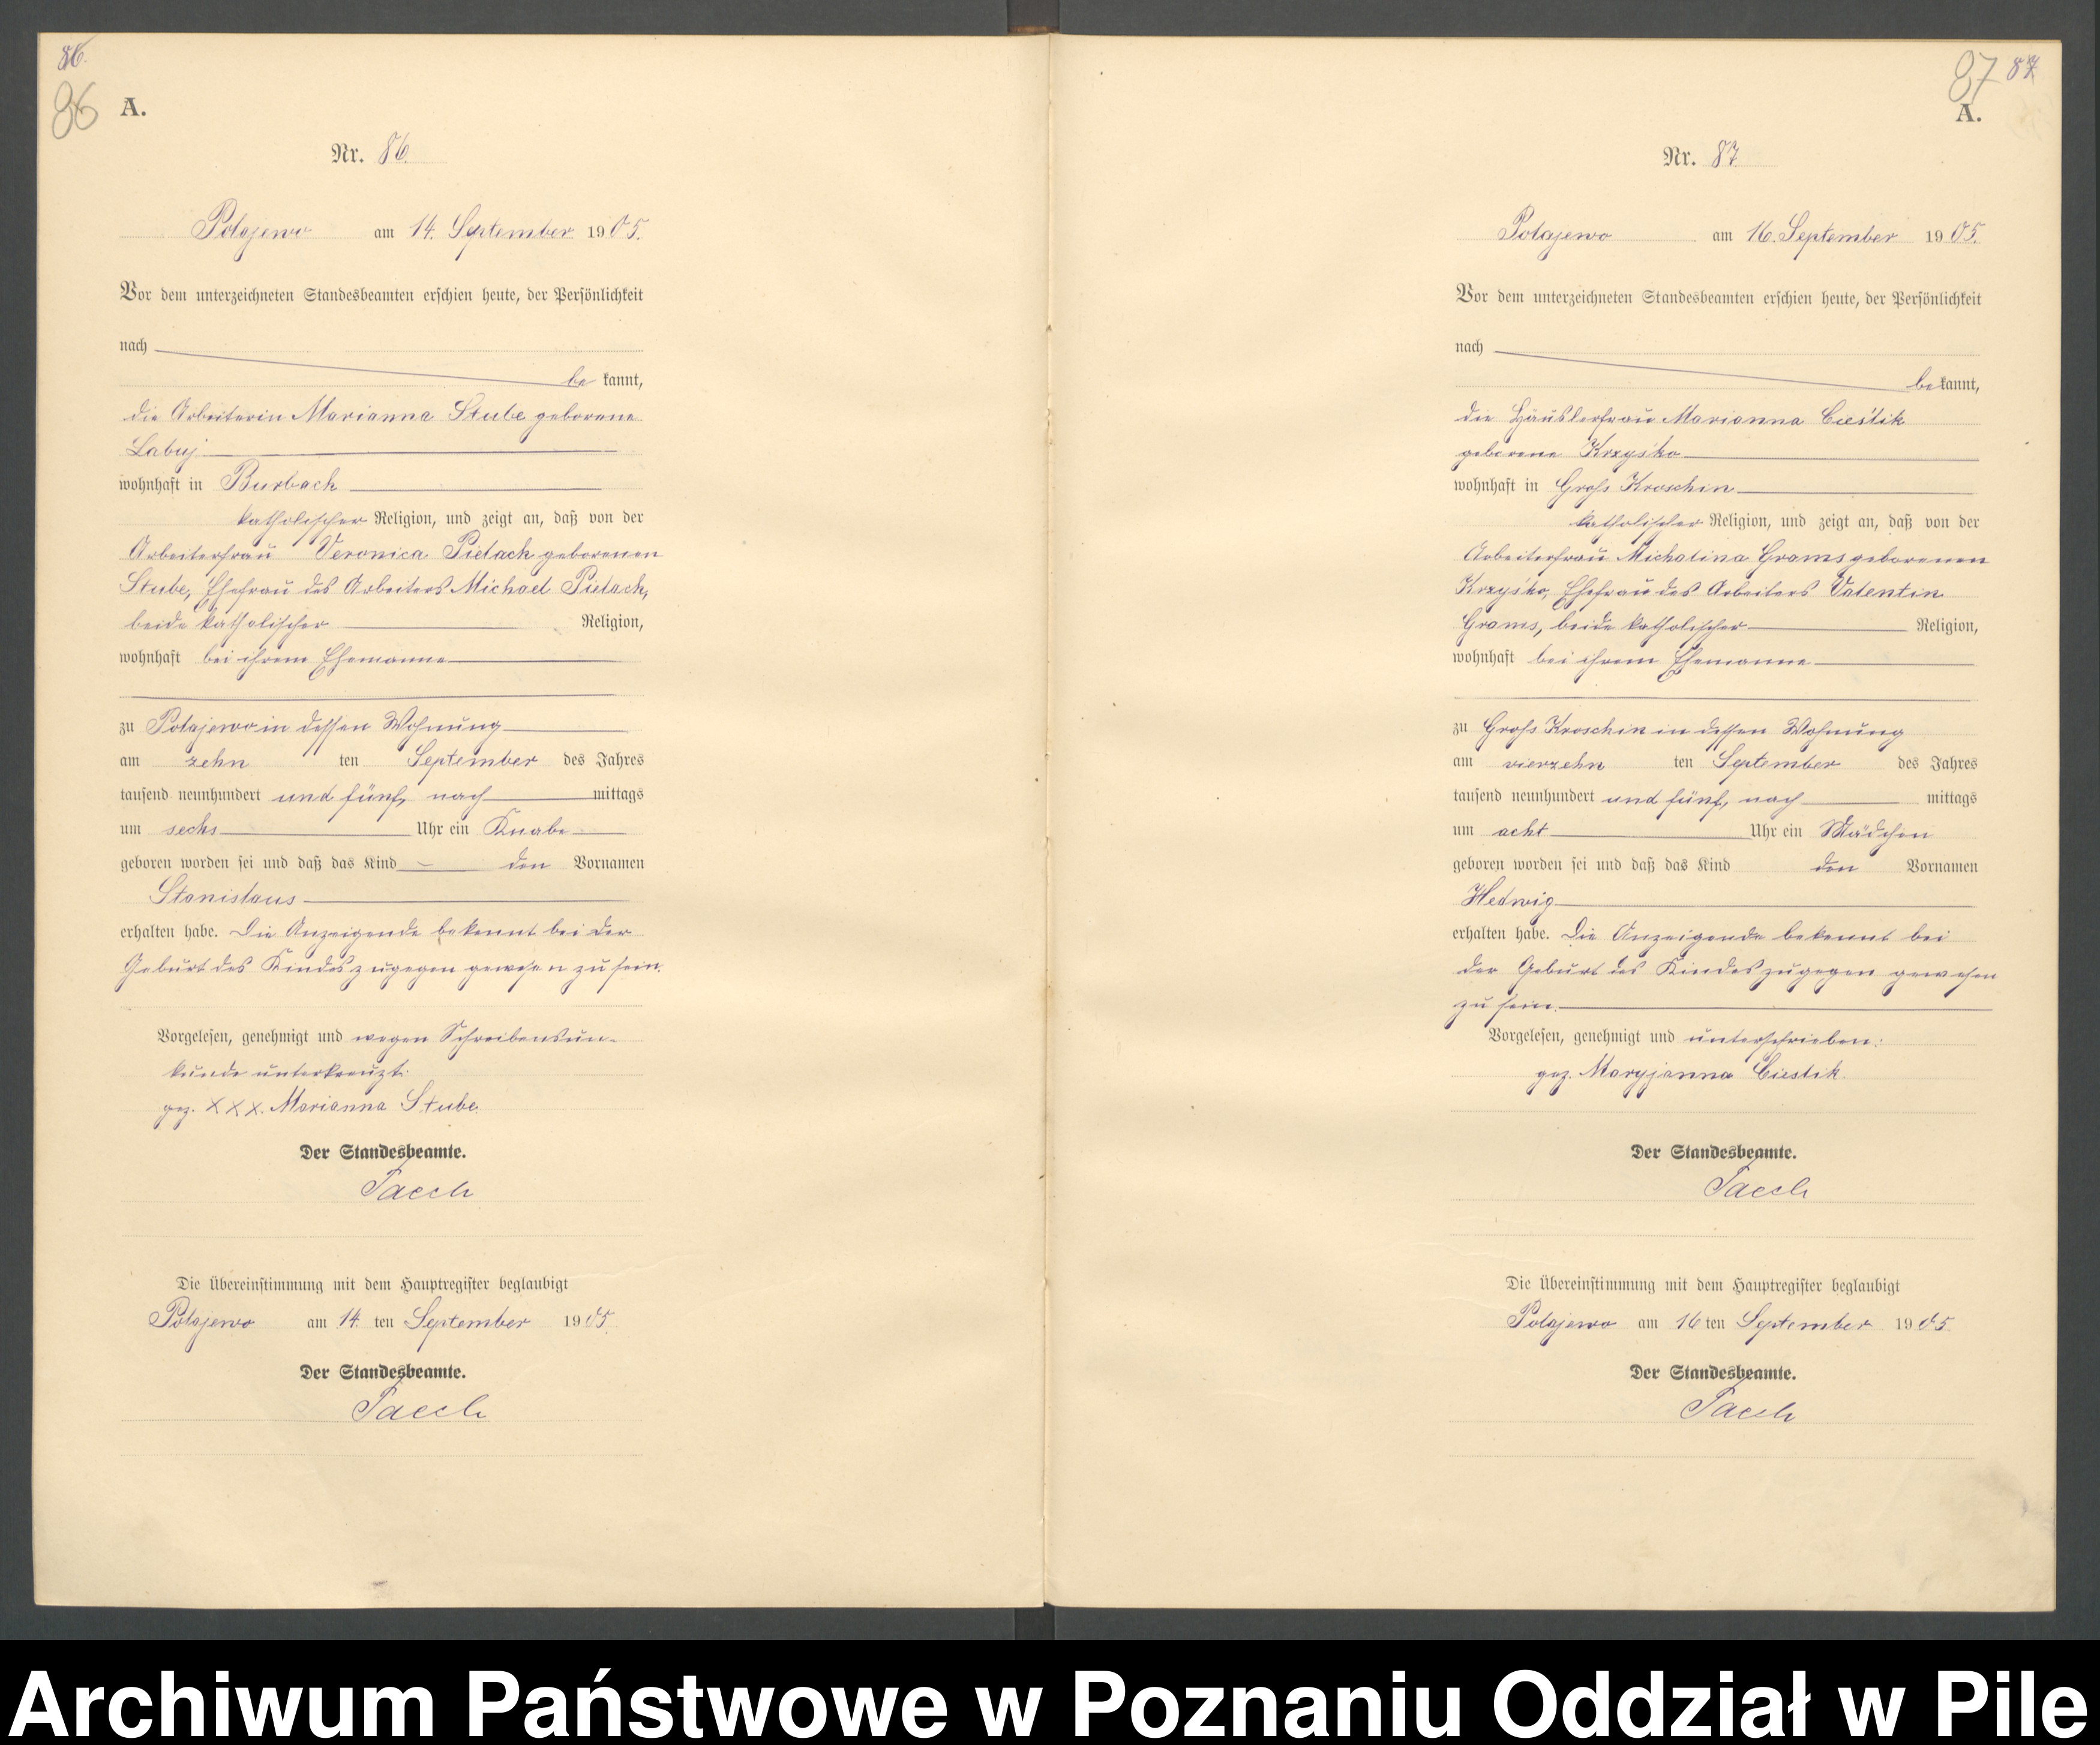 86.
86
A.
Nr. 86.
Polajewo am 14. September 1905.
Vor dem unterzeichneten Standesbeamten erschien heute, der Persönlichkeit
nach
be kannt,
die Arbeiterin Marianna Stube geborene
Labuj
wohnhaft in Burbach
katholischer Religion, und zeigt an, daß von der
Arbeiterfrau Veronica Pielach geborenen
Stube, Ehefrau des Arbeiters Michael Pielach,
beide katholischer Religion,
wohnhaft bei ihrem Ehemanne
zu Polajewo in dessen Wohnung
am zehn ten September des Jahres
tausend neunhundert und fünf, nach mittags
um sechs Uhr ein Knabe
geboren worden sei und daß das Kind den Vornamen
Stanislaus
erhalten habe. Die Anzeigende bekennt bei der
Geburt des Kindes zugegen gewesen zu sein.
Vorgelesen, genehmigt und wegen Schreibensun-
kunde unterkreuzt:
gez. XXX. Marianna Stube.
Der Standesbeamte.
Die Übereinstimmung mit dem Hauptregister beglaubigt
Polajewo am 14. ten September 1905.
Der Standesbeamte.
87 87
A.
Nr. 87
Polajewo am 16. September 1905.
Vor dem unterzeichneten Standesbeamten erschien heute, der Persönlichkeit
nach
bekannt,
die Häuslerfrau Marianna Cieślik
geborene Krzyśko
wohnhaft in Groß Kroschin
katholischer Religion, und zeigt an, daß von der
Arbeiterfrau Michalina Grams geborenen
Krzyśko, Ehefrau des Arbeiters Valentin
Grams, beide katholischer Religion,
wohnhaft bei ihrem Ehemanne
zu Groß Kroschin in dessen Wohnung
am vierzehn ten September des Jahres
tausend neunhundert und fünf, nach mittags
um acht Uhr ein Mädchen
geboren worden sei und daß das Kind den Vornamen
Hedwig
erhalten habe. Die Anzeigende bekennt bei
der Geburt des Kindes zugegen gewesen
zu sein.
Vorgelesen, genehmigt und unterschrieben:
gez. Maryjanna Cieslik.
Der Standesbeamte.
Die Übereinstimmung mit dem Hauptregister beglaubigt
Polajewo am 16 ten September 1905.
Der Standesbeamte.
Archiwum Państwowe w Poznaniu Oddział w Pile